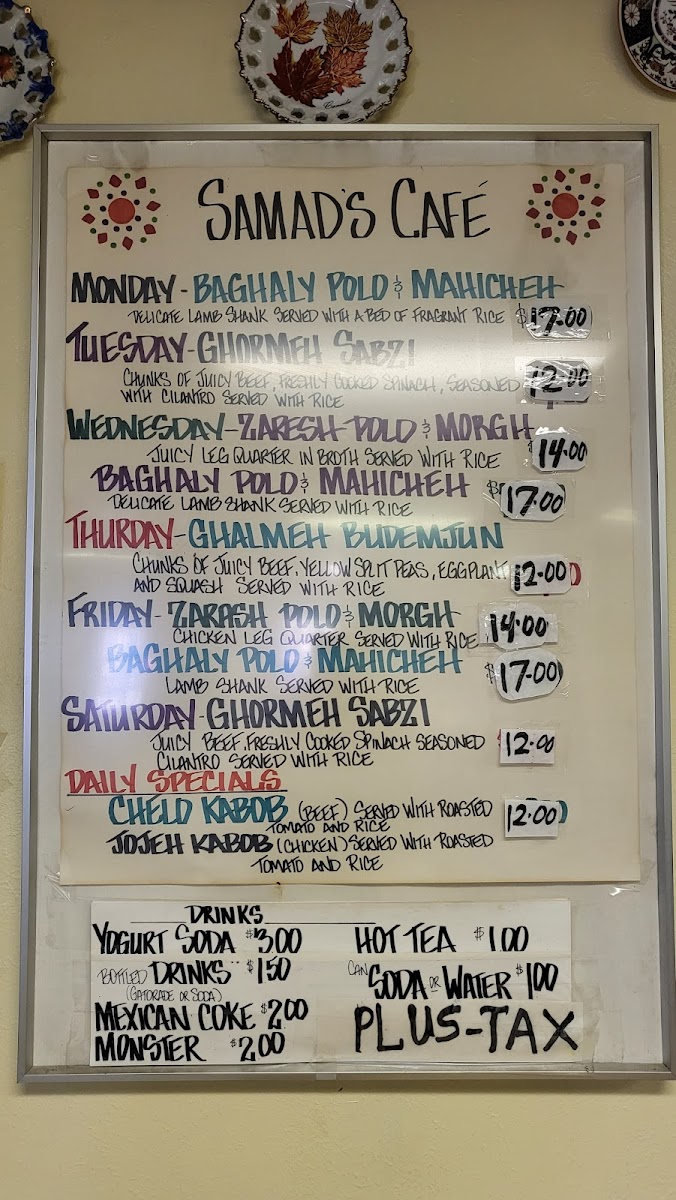 Canada
SAMAD'S CAFÉ
MONDAY - BAGHALY POLO & MAHICHEH
DELICATE LAMB SHANK SERVED WITH A BED OF FRAGRANT RICE $17.00
TUESDAY - GHORMEH SABZI
CHUNKS OF JUICY BEEF, FRESHLY COOKED SPINACH, SEASONED 12.00
WITH CILANTRO SERVED WITH RICE
WEDNESDAY - ZARESH POLO & MORGH
JUICY LEG QUARTER IN BROTH SERVED WITH RICE 14.00
BAGHALY POLO & MAHICHEH
DELICATE LAMB SHANK SERVED WITH RICE $17.00
THURDAY - GHALMEH BUDEMJUN
CHUNKS OF JUICY BEEF, YELLOW SPLIT PEAS, EGGPLANT 12.00
AND SQUASH SERVED WITH RICE
FRIDAY - ZARASH POLO & MORGH
CHICKEN LEG QUARTER SERVED WITH RICE 14.00
BAGHALY POLO & MAHICHEH
LAMB SHANK SERVED WITH RICE $17.00
SATURDAY - GHORMEH SABZI
JUICY BEEF, FRESHLY COOKED SPINACH SEASONED 12.00
CILANTRO SERVED WITH RICE
DAILY SPECIALS
CHELO KABOB (BEEF) SERVED WITH ROASTED 12.00
TOMATO AND RICE
JOJEH KABOB (CHICKEN) SERVED WITH ROASTED
TOMATO AND RICE
DRINKS
YOGURT SODA $3.00 HOT TEA $1.00
BOTTLED DRINKS $1.50 CAN SODA OR WATER $1.00
(GATORADE OR SODA)
MEXICAN COKE $2.00 PLUS-TAX
MONSTER $2.00